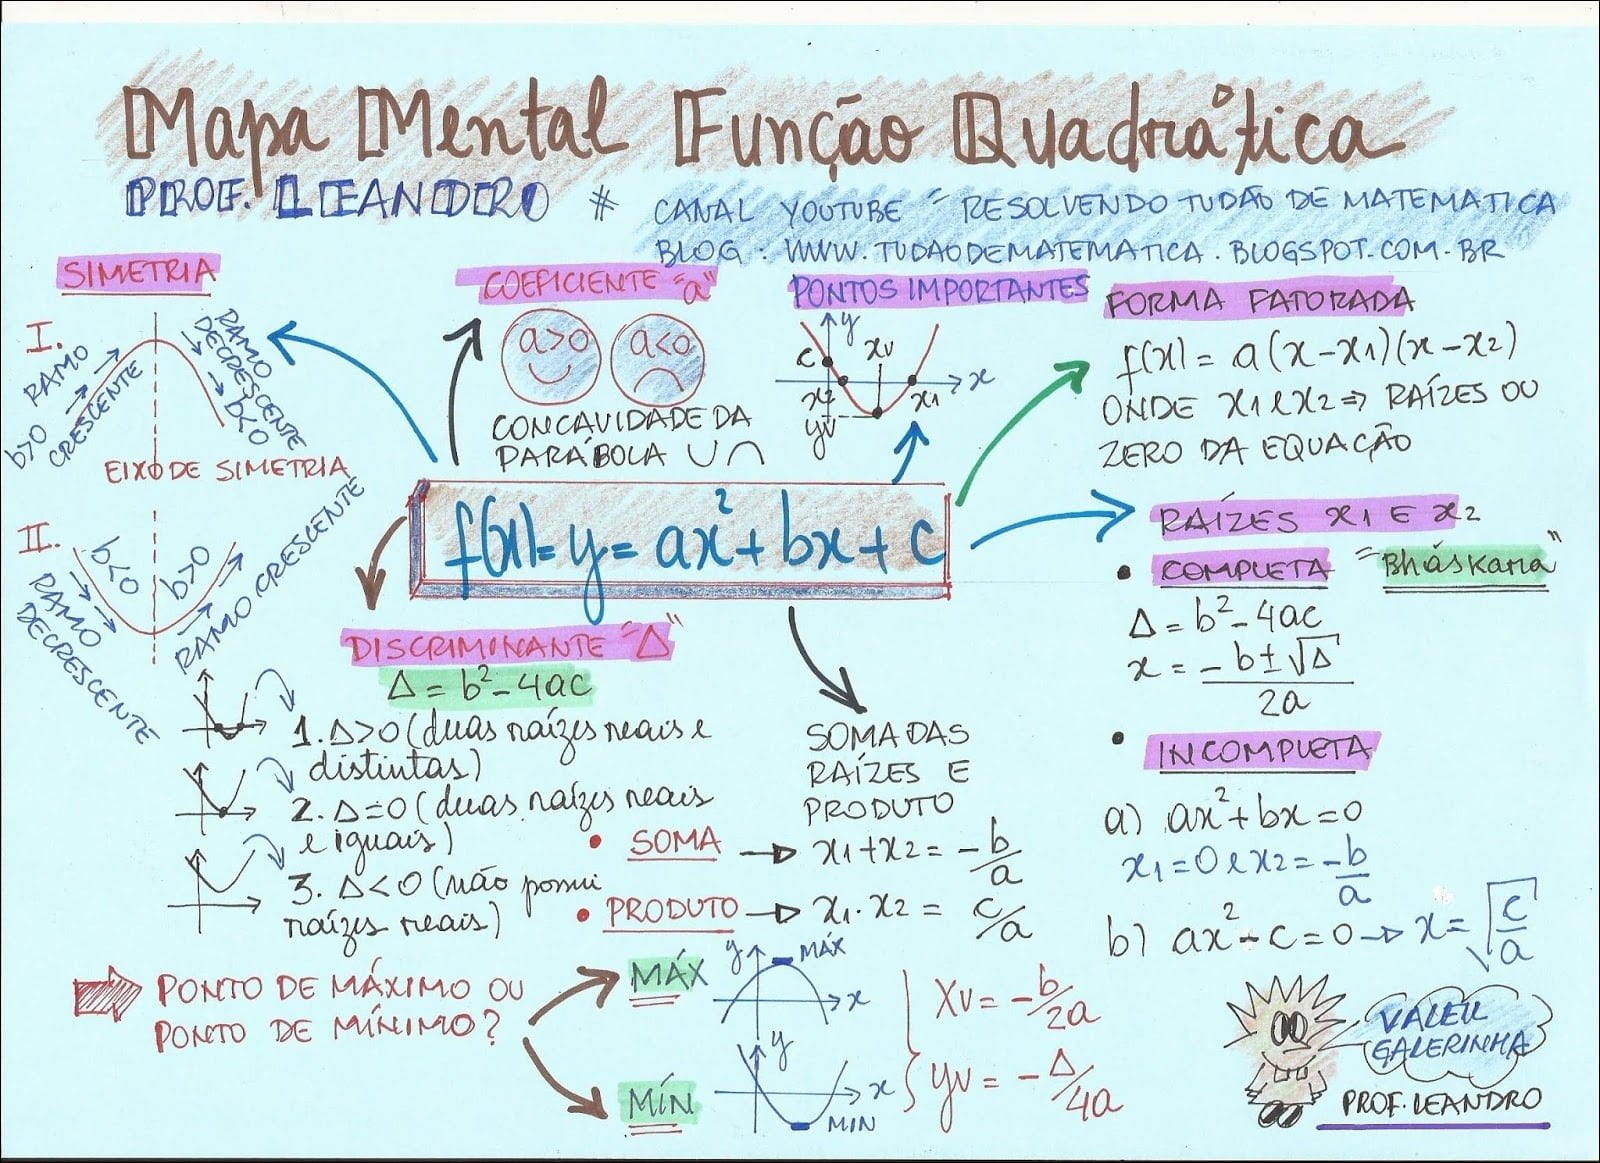 Mapa Mental Função Quadrática
PROF. LEANDRO # CANAL YOUTUBE - RESOLVENDO TUDÃO DE MATEMÁTICA
BLOG: WWW.TUDAODEMATEMATICA.BLOGSPOT.COM.BR
SIMETRIA
I.
b>0 RAMO CRESCENTE
RAMO DECRESCENTE b<0
EIXO DE SIMETRIA
II.
b<0
b>0
RAMO DECRESCENTE
RAMO CRESCENTE
COEFICIENTE "a"
a>0
a<0
CONCAVIDADE DA
PARÁBOLA ∪ ∩
PONTOS IMPORTANTES
y
c
xv
x
x2
x1
yv
FORMA FATORADA
f(x) = a(x-x1)(x-x2)
ONDE x1 e x2 ⇒ RAÍZES OU
ZERO DA EQUAÇÃO
f(x)=y=ax²+bx+c
RAÍZES x1 E x2
• COMPLETA "Bháskara"
Δ = b²-4ac
x = -b±√Δ
2a
• INCOMPLETA
a) ax²+bx=0
x1=0 e x2=-b/a
b) ax²-c=0 → x=√c/a
DISCRIMINANTE "Δ"
Δ = b²-4ac
1. Δ>0 (duas raízes reais e
distintas)
2. Δ=0 (duas raízes reais
e iguais)
3. Δ<0 (não possui
raízes reais)
SOMA DAS
RAÍZES E
PRODUTO
• SOMA → x1+x2 = -b/a
• PRODUTO → x1.x2 = c/a
PONTO DE MÁXIMO OU
PONTO DE MÍNIMO?
MÁX
y
MÁX
x
MÍN
y
x
MIN
Xv = -b/2a
yv = -Δ/4a
VALEU
GALERINHA
PROF. LEANDRO